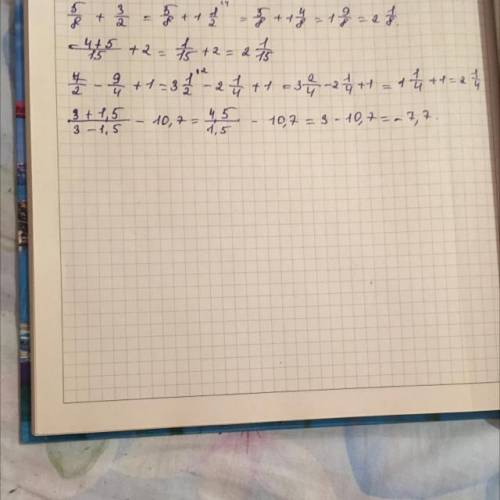 5/8 + 3/2 = 5/8 + 1 1/2 = 5/8 + 1 4/8 = 1 9/8 = 2 1/8.
-4+5/15 + 2 = 1/15 + 2 = 2 1/15
7/2 - 9/4 + 1 = 3 1/2 - 2 1/4 + 1 = 3 2/4 - 2 1/4 + 1 = 1 1/4 + 1 = 2 1/4
3+1,5/3-1,5 - 10,7 = 4,5/1,5 - 10,7 = 3 - 10,7 = -7,7.